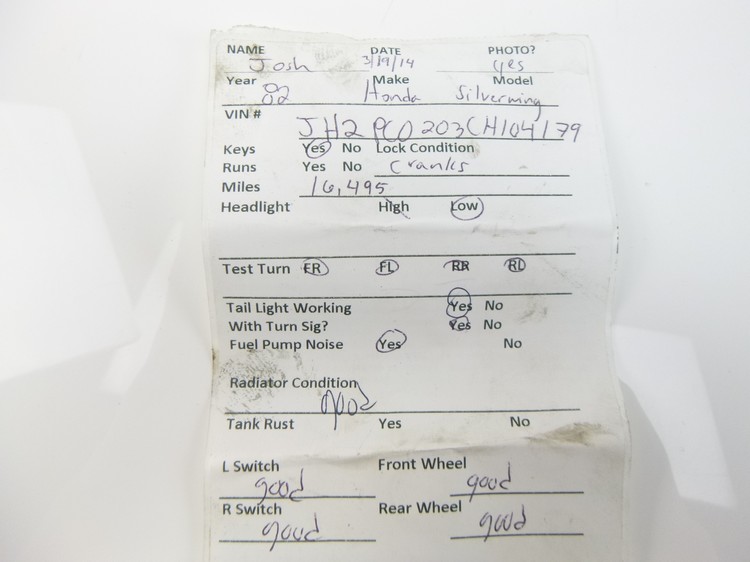 NAME DATE PHOTO?
Josh 3/19/14 yes
Year Make Model
82 Honda Silverwing
VIN #
JH2PC0203CM104179
Keys Yes No Lock Condition
Runs Yes No Cranks
Miles 16,495
Headlight High Low
Test Turn FR FL RR RL
Tail Light Working Yes No
With Turn Sig? Yes No
Fuel Pump Noise Yes No
Radiator Condition
good
Tank Rust Yes No
L Switch Front Wheel
good good
R Switch Rear Wheel
good good